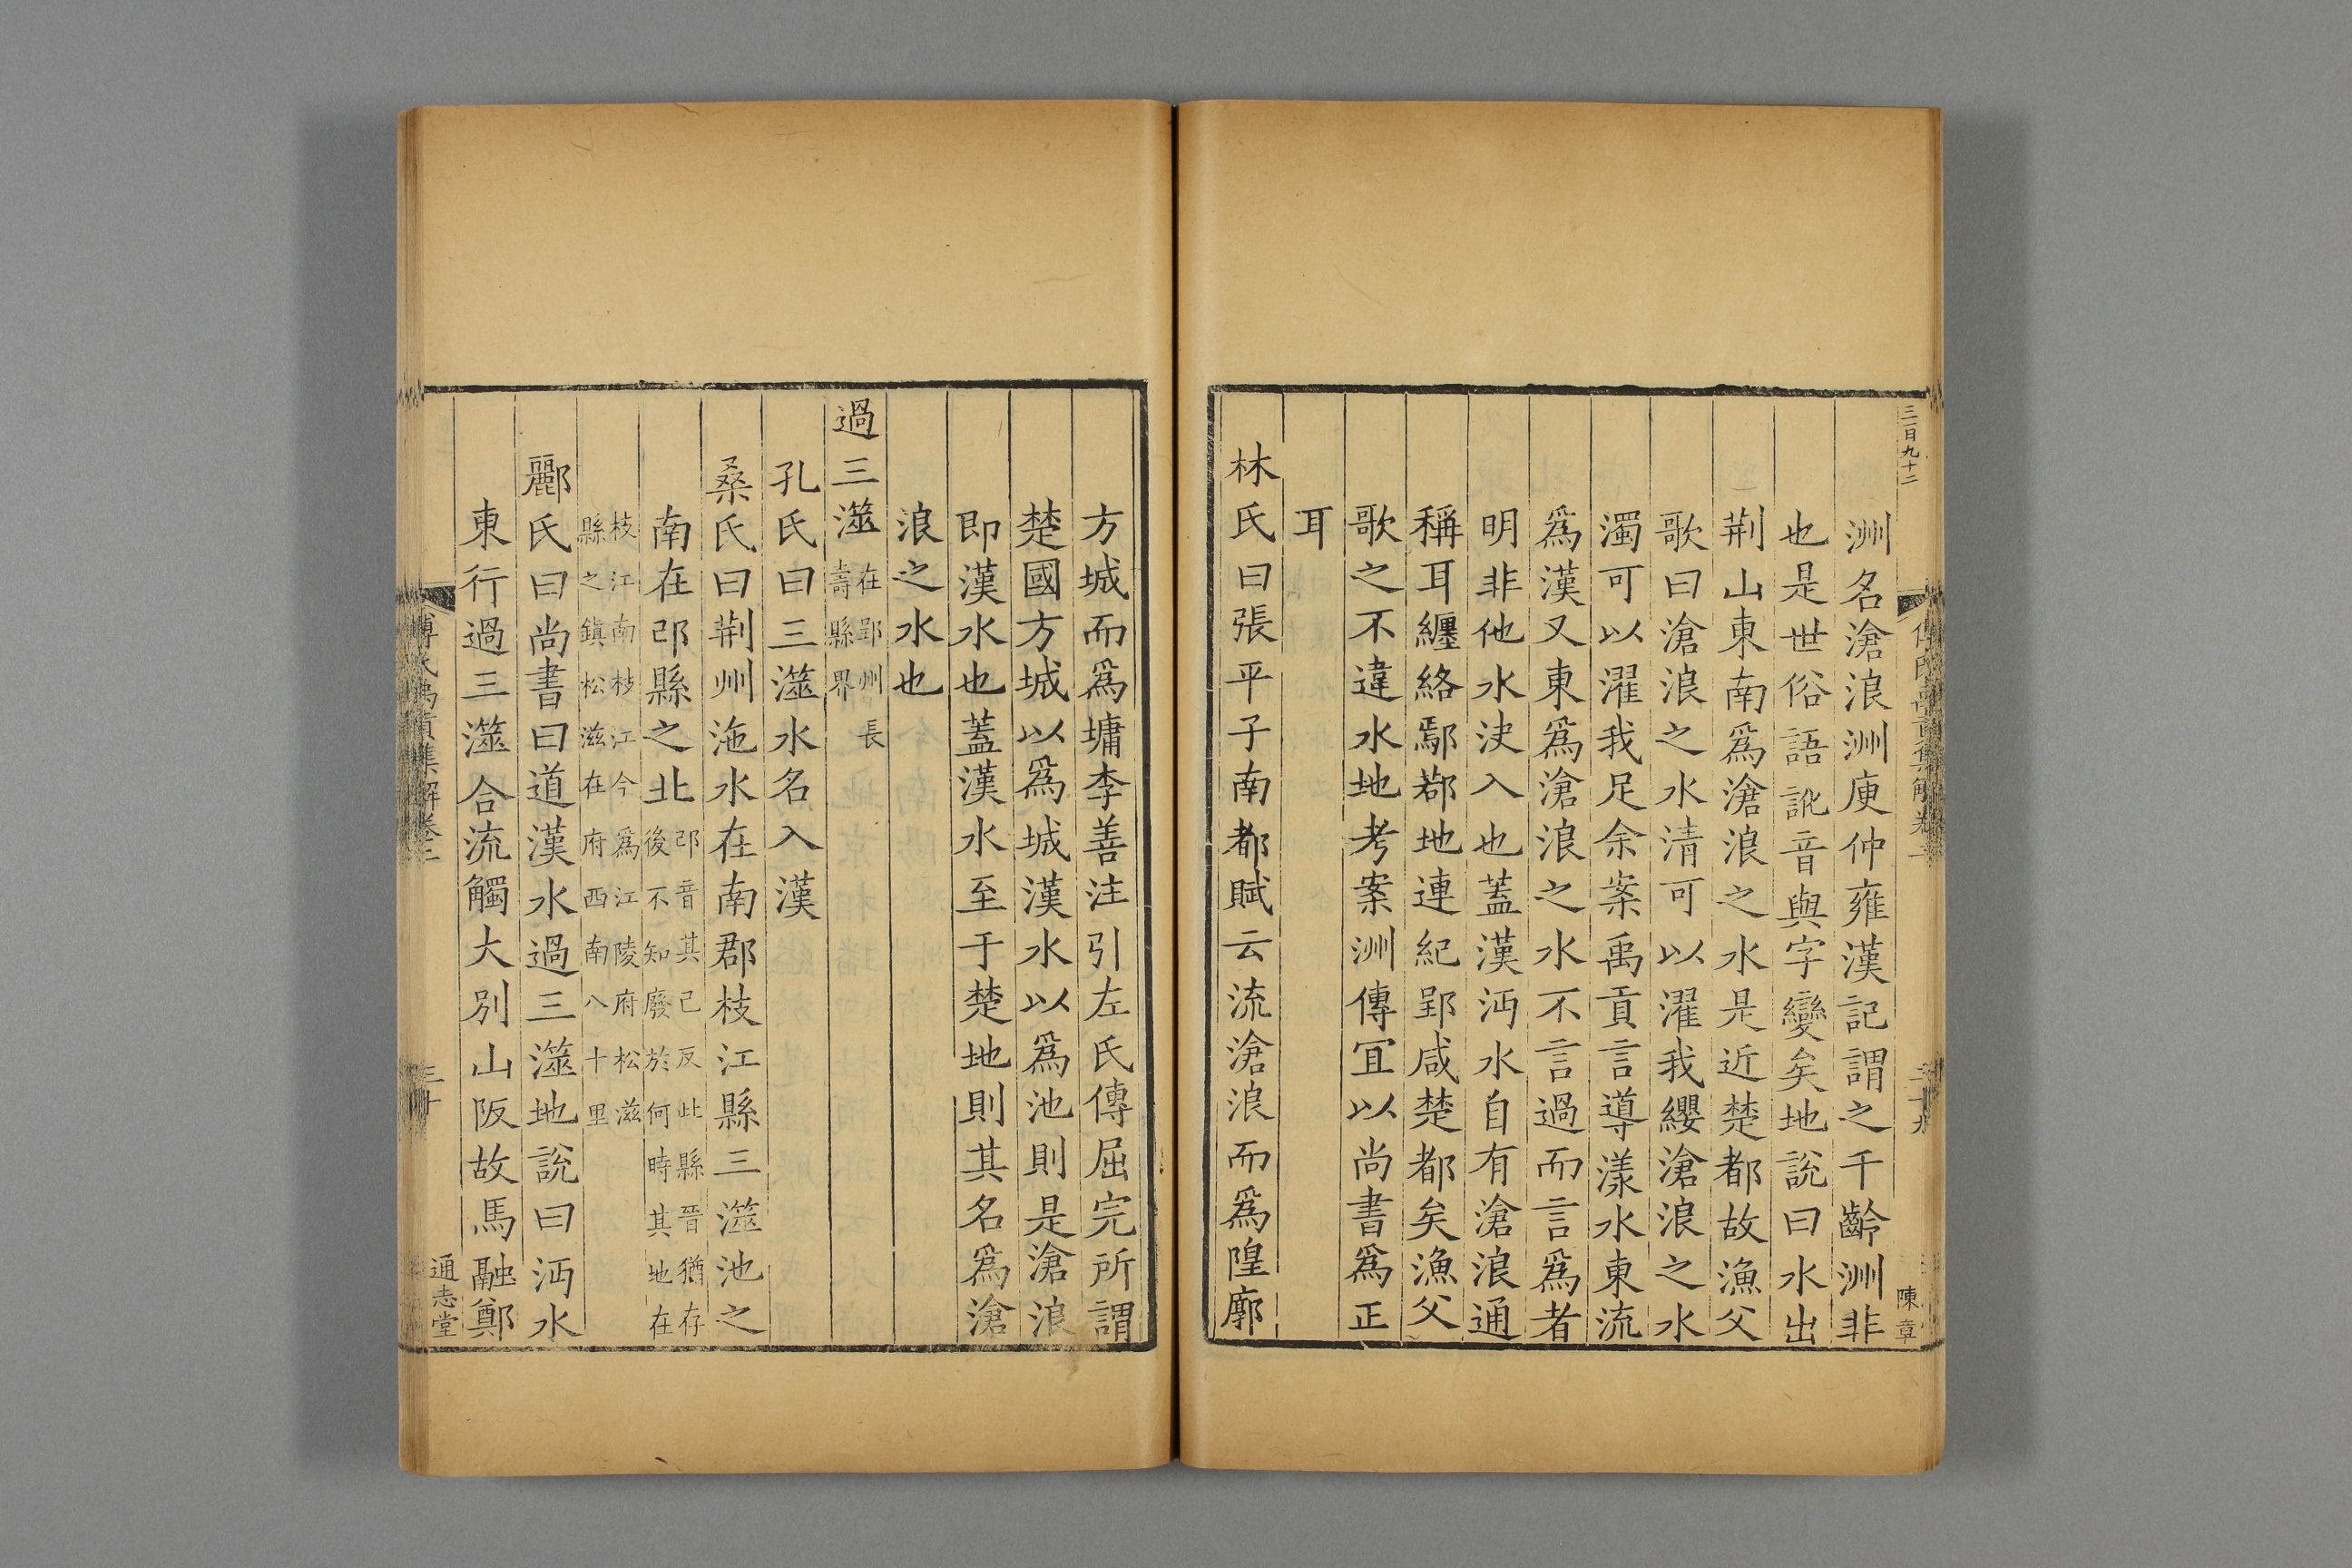 三百九十二
洲名滄浪洲庾仲雍漢記謂之千齡洲非
也是世俗語訛音與字變矣地說曰水出
荆山東南爲滄浪之水是近楚都故漁父
歌曰滄浪之水清可以濯我纓滄浪之水
濁可以濯我足余案禹貢言導漾水東流
爲漢又東爲滄浪之水不言過而言爲者
明非他水決入也蓋漢沔水自有滄浪通
稱耳纏絡鄢郡地連紀郢咸楚都矣漁父
歌之不違水地考案洲傳宜以尚書爲正
耳
林氏曰張平子南都賦云流滄浪而爲隍廓
陳章
方城而爲墉李善注引左氏傳屈完所謂
楚國方城以爲城漢水以爲池則是滄浪
即漢水也蓋漢水至于楚地則其名爲滄
浪之水也
過三澨在郢州長壽縣界
孔氏曰三澨水名入漢
桑氏曰荆州沲水在南郡枝江縣三澨池之
南在邔縣之北邔音其己反此縣晉猶存後不知廢於何時其地在
枝江南枝江今爲江陵府松滋縣之鎮松滋在府西南八十里
酈氏曰尚書曰道漢水過三澨地説曰沔水
東行過三澨合流觸大別山阪故馬融鄭
傅氏禹貢集解卷三
三十
通志堂